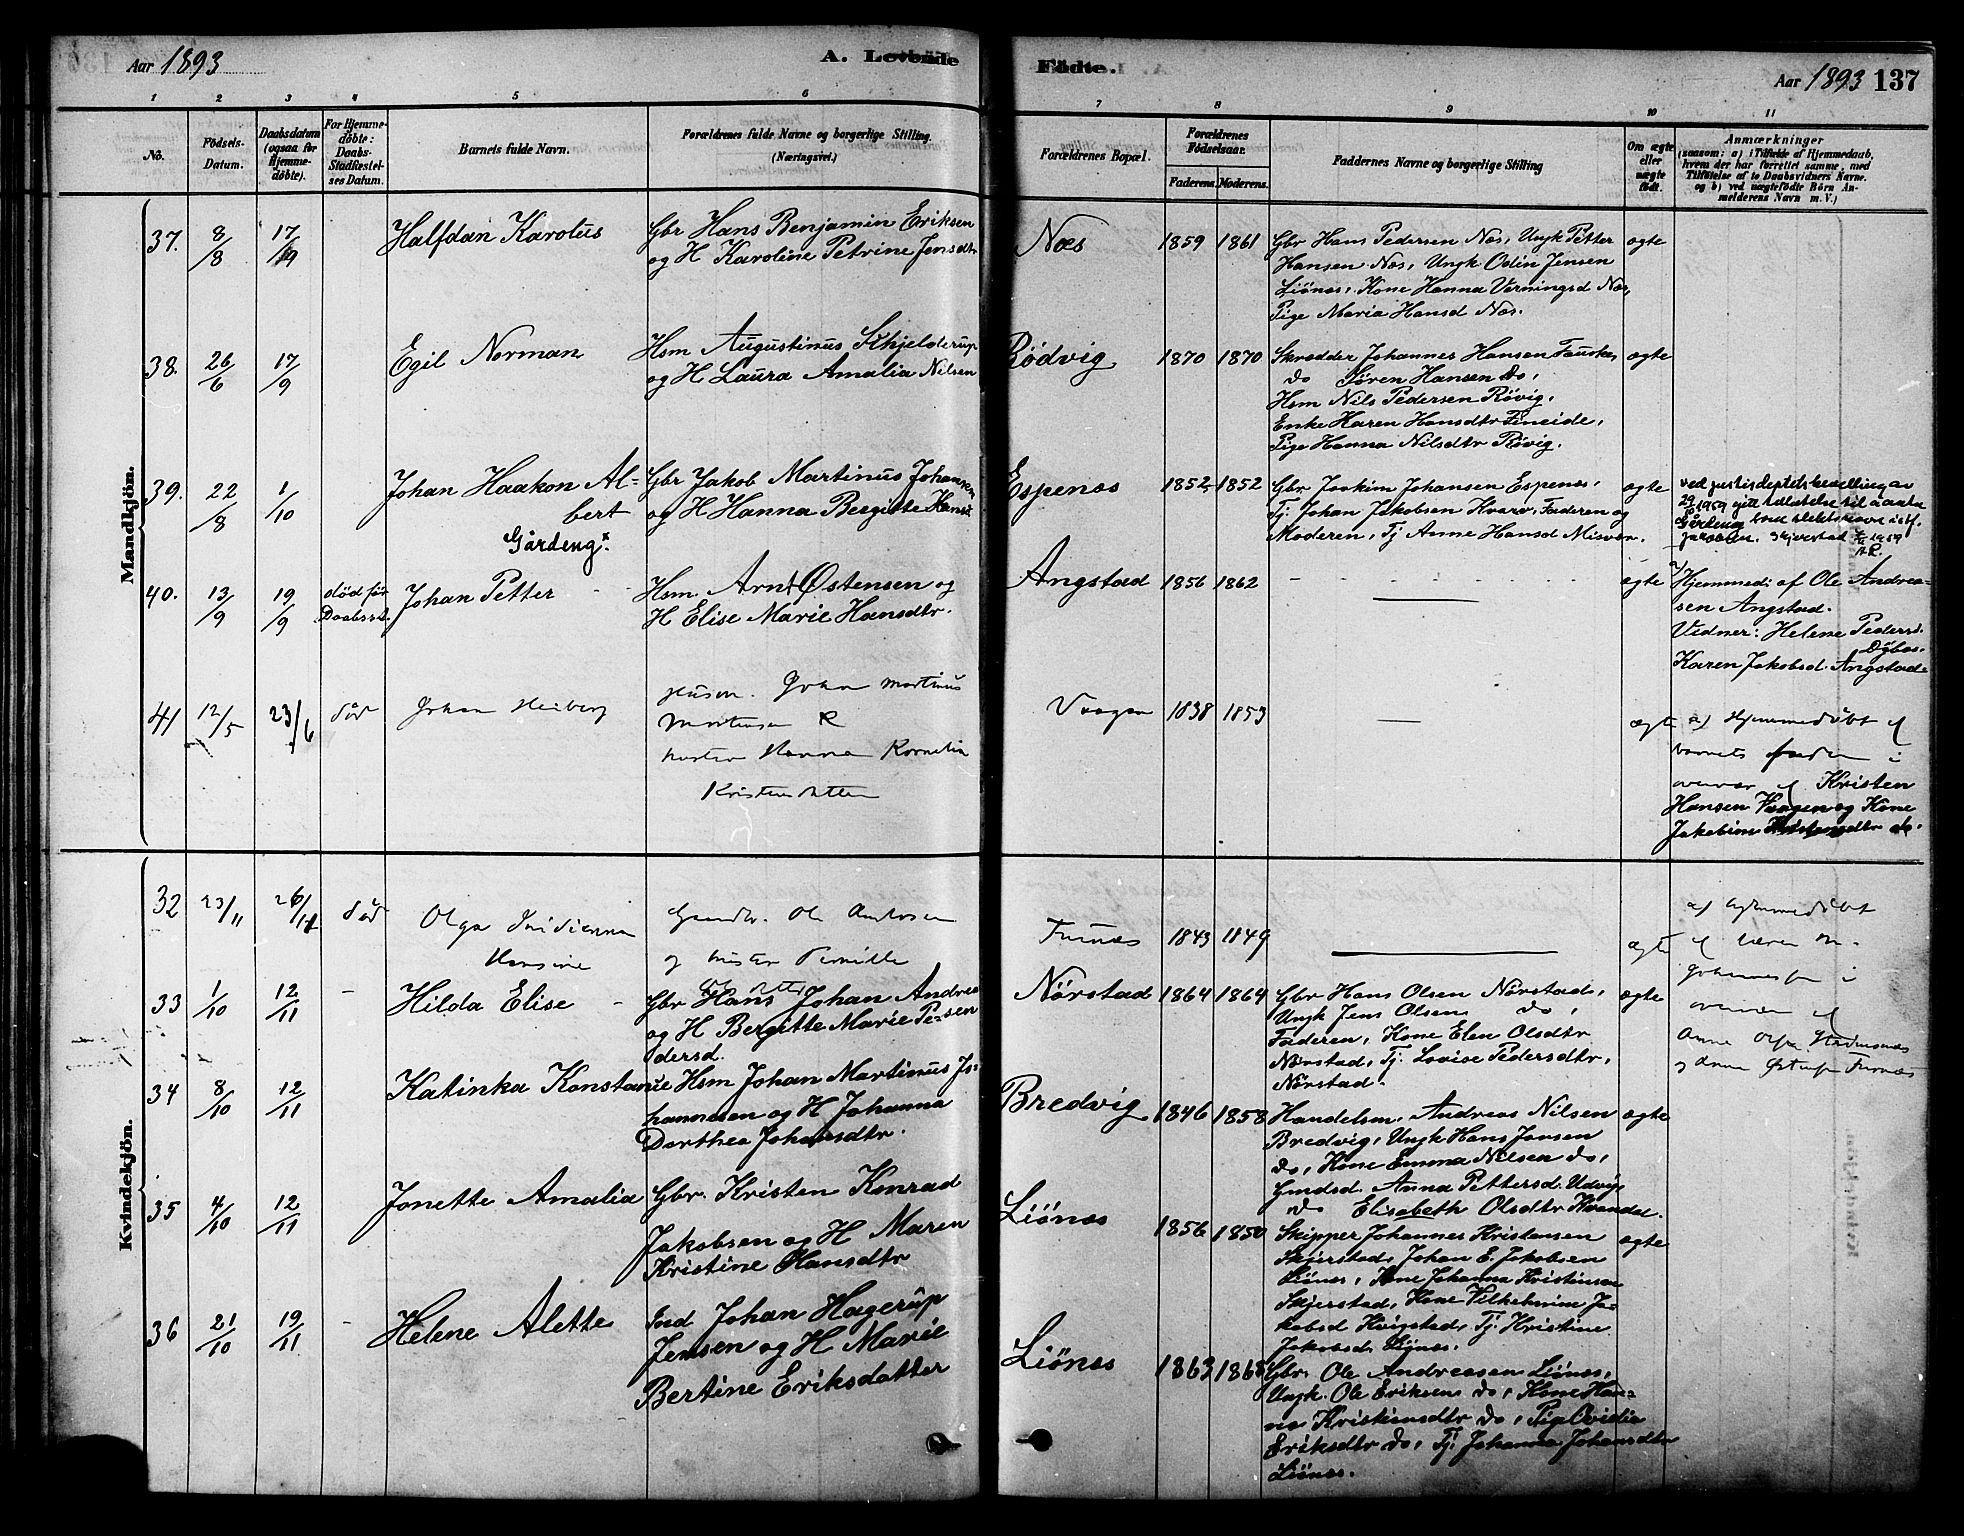 Aar 1893
A. Levende
Fødte.
Aar 1893 137
1 2 3 4 5 6 7 8 9 10 11
No.
Fødsels-
Datum.
Daabsdatum
(ogsaa for
Hjemme-
døbte).
For Hjemme-
døbte:
Daabs-
Stadfæstel-
ses Datum.
Barnets fulde Navn.
Forældrenes fulde Navne og borgerlige Stilling.
(Næringsvei.)
Forældrenes Bopæl.
Forældrenes
Fødselsaar.
Faderens. Moderens.
Faddernes Navne og borgerlige Stilling
Om ægte
eller
uægte
født.
Anmærkninger
(saasom: a) i Tilfælde af Hjemmedaab,
hvem der har forrettet samme, med
Tilføielse af to Daabsvidners Navne.
og b) ved uægtefødte Børn An-
melderens Navn m. V.)
Mandkjøn.
37. 8/8 17/9 Halfdan Karolus
Gbr Hans Benjamin Eriksen
og H Karoline Petrine Jensdtr
Næs 1859 1861
Gbr Hans Pedersen Næs, Ungk Petter
Hansen Næs, Ungk Odin Jensen
Liönæs, Kone Hanna Verningsd Næs,
Pige Maria Hansd Næs.
ægte
38. 26/6 17/9 Egil Norman
Hsm Augustinus Schjelderup
og H Laura Amalia Nilsen
Rödvig 1870 1870
Skrædder Johannes Hansen Fauske,
do Sören Hansen do,
Hsm Nils Pedersen Rövig,
Enke Karen Hansdtr Fineide,
Pige Hanna Nilsdtr Rövig.
ægte
39. 22/8 1/10 Johan Haakon Al-
bert
Gårdeng x
Gbr Jakob Martinus Johansen
og H Hanna Bergitte Hansd
Espenæs 1852 1852
Gbr Joakim Johansen Espenæs,
Tj Johan Jakobsen Kvarv, Faderen og
Moderen, Tj Anne Hansd Misvær.
ægte
ved justisdeptets bevilling av
1959 gitt tillatelse til å anta
Gårdeng som slektsnavn istf.
Skjerstad 1959
AR.
40. 13/9 19/9 död för
Daabsst. Johan Petter
Hsm Arnt Østensen og
H Elise Marie Hansdtr.
Angstad 1856 1862
ægte
a) Hjemmed: af Ole Andrea-
sen Angstad.
Vidner: Helene Pedersd.
Karen Jakobsd. Angstad
41 12/5 23/6 död Johan Heiberg
Johan Martinus
Hanna Kornelia
Kristensdatter
Vaagan 1838 1853
ægte
a) Hjemmedöbt af
barnets fader i
overvær af Kristen
Hansen Vaagen og Kone
Jakobine Kristensdtr do.
Kvindekjøn.
32 23/11 26/11 död Olga
Hansine
Gaardbr. Ole
og hustru Pernille
Furnæs 1843 1849
ægte
a) hjemmedöbt
af lærer M.
Johannesen i
overvær af
33 1/10 12/11 Hilda Elise
Gbr Hans Johan Andrea
sen
og H Bergitte Marie Pe-
dersd.
Nörstad 1864 1864
Gbr Hans Olsen Nörstad,
Ungk Jens Olsen do,
Faderen, Kone Elen Olsdtr
Nörstad, Tj. Lovise Pedersdtr,
Nörstad.
ægte
34 8/10 12/11 Katinka Konstanse
Hsm Johan Martinus Jo-
hannesen og H Johanna
Dorthea Johansdtr.
Bredvig 1846 1858
Handelsm. Andreas Nilsen
Bredvig, Ungk Hans Jensen
do, Kone Emma Nilsen do,
Gmdsd. Anna Pettersd. Udvig
do Elisabeth Olsdtr Kvandal.
ægte
35 4/10 12/11 Jonette Amalia
Gbr. Kristen Konrad
Jakobsen og H Maren
Kristine Hansdtr
Liönæs 1856 1850
Skipper Johannes Kristensen
Skjerstad, Johan E. Jakobsen
Liönæs, Kone Johanna Kristensen
Skjerstad, Kone Vilhelmine Ja-
kobsd Kvigstad, Tj. Kristine
Jakobsd. Liönæs.
ægte
36 21/10 19/11 Helene Alette
Ind Johan Hagerup
Jensen og H Marie
Bertine Eriksdatter
Liönæs 1863 1868
Gbr. Ole Andreassen Liönæs,
Ungk. Ole Eriksen do, Kone Han-
na Kristiansdtr do, Pige Ovidia
Eriksdtr do, Tj. Johanna Johansdtr
Liönæs.